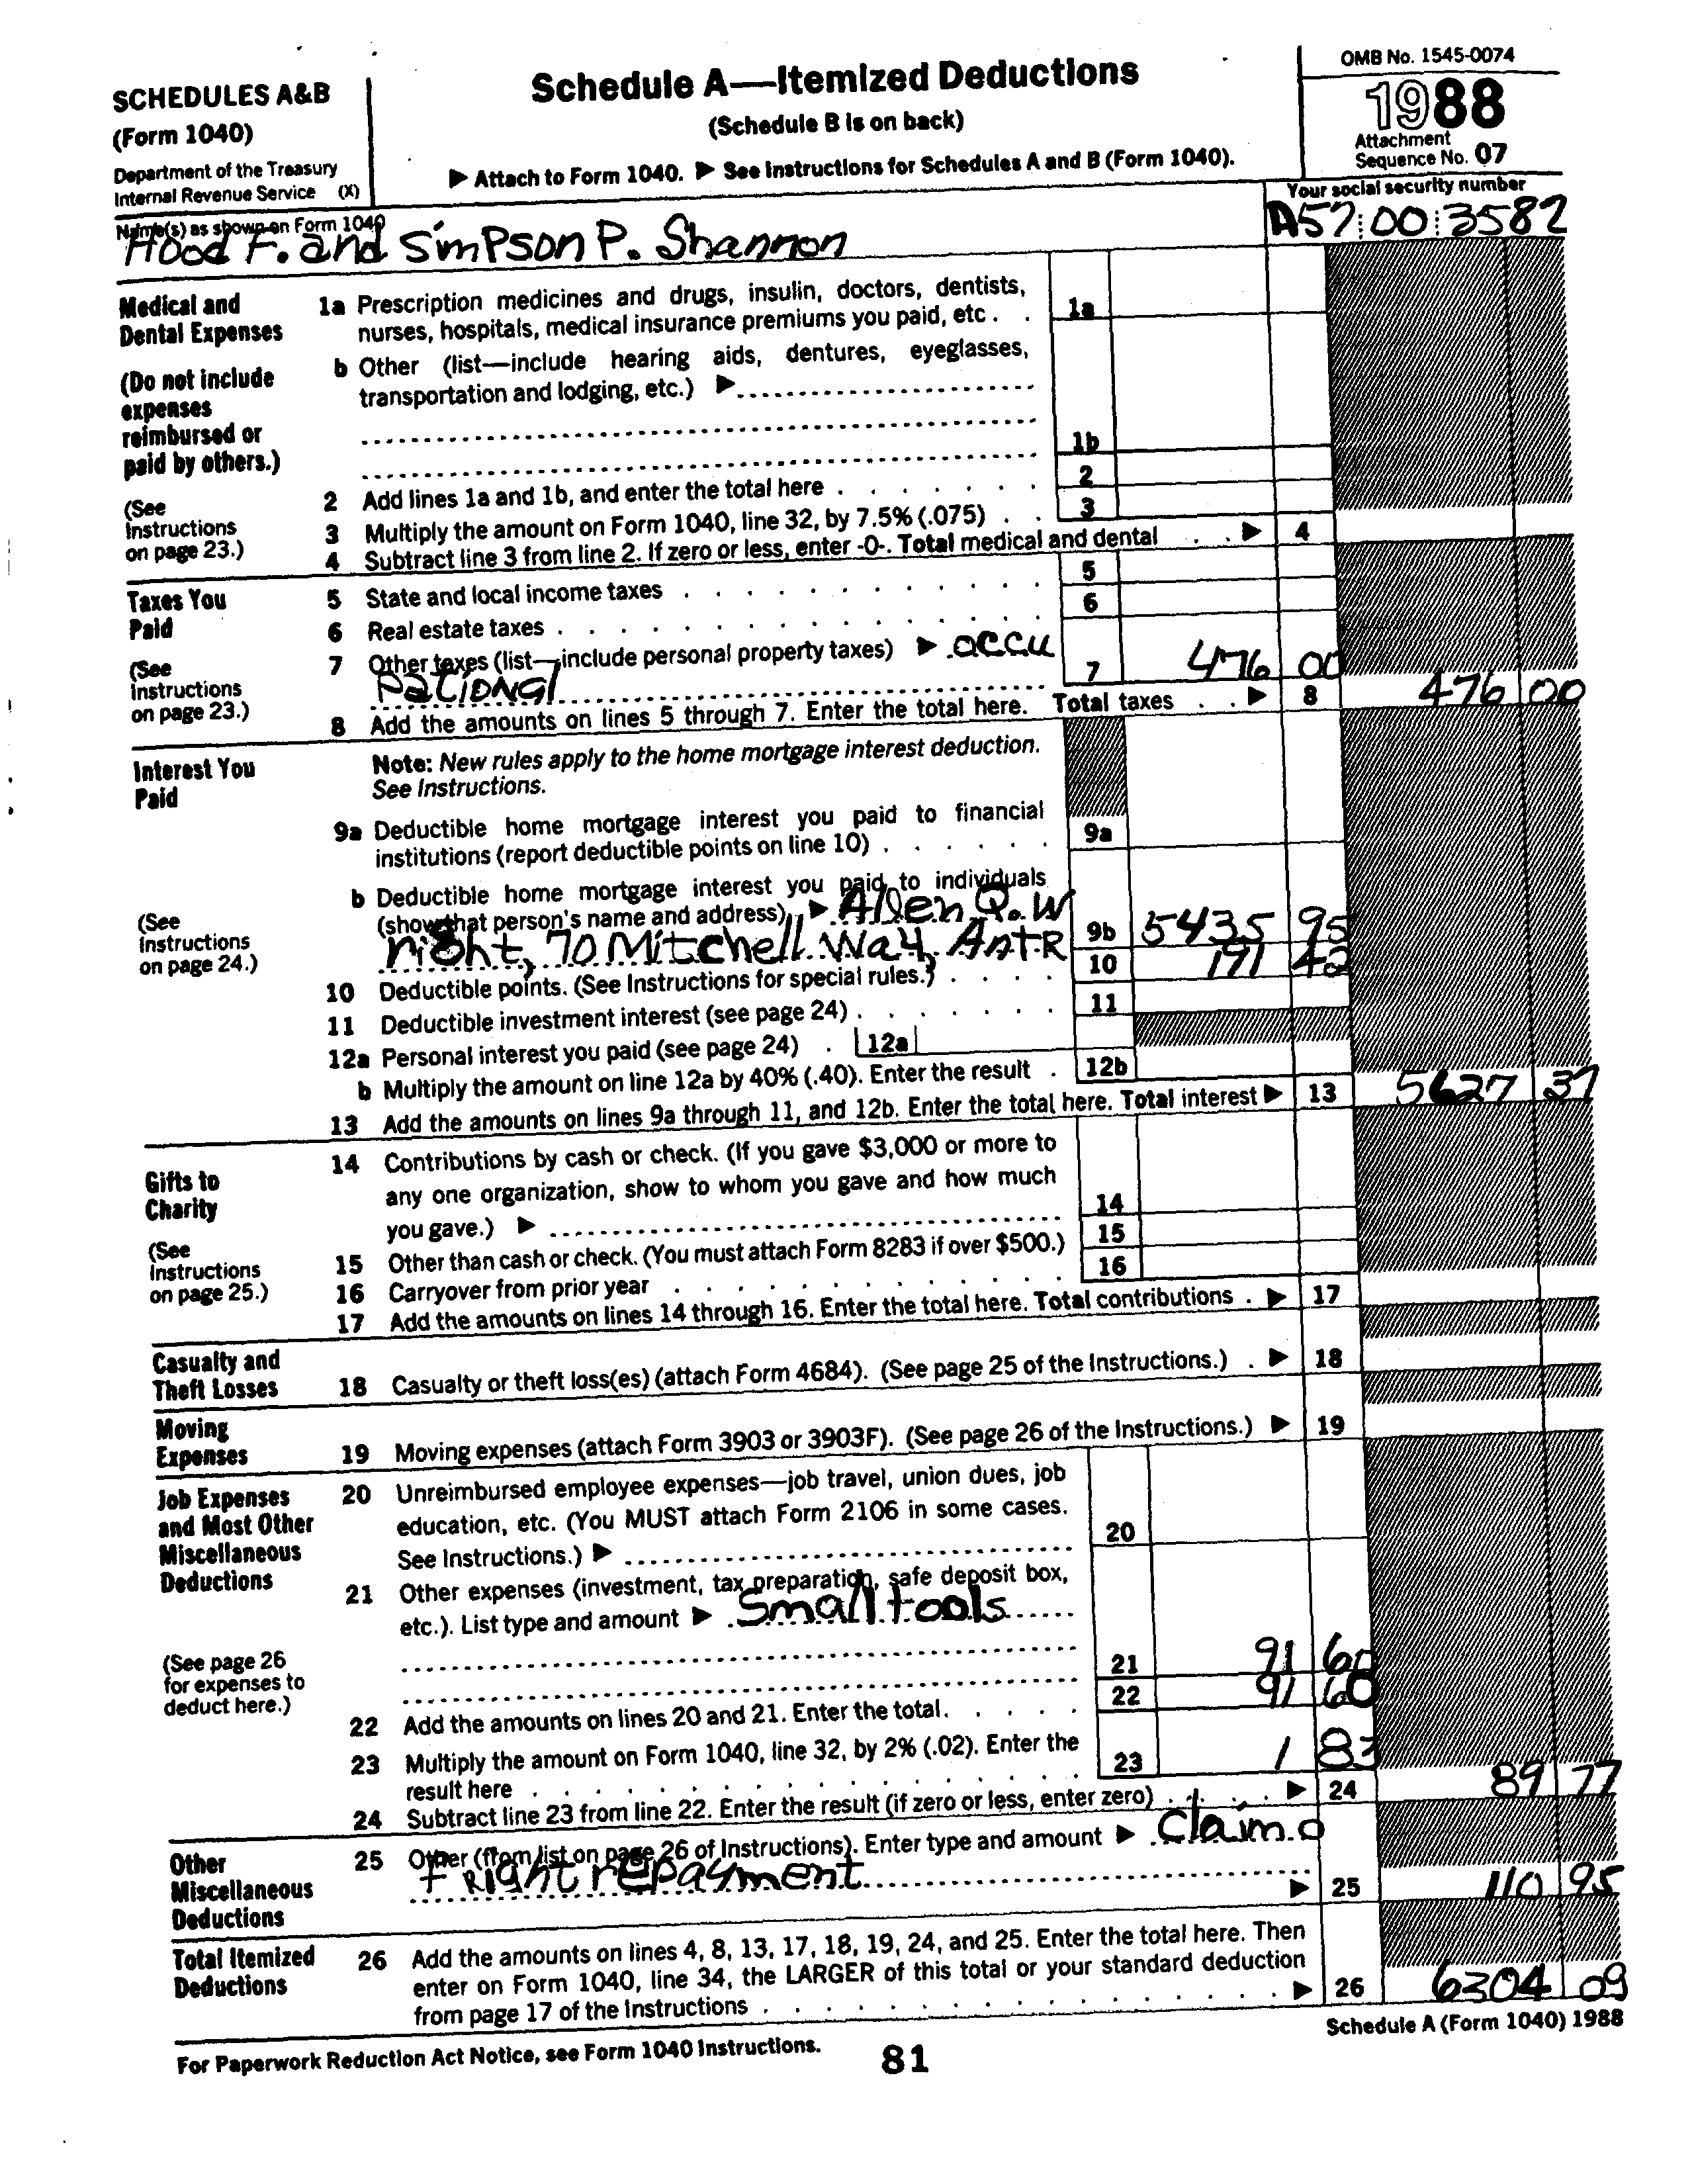 SCHEDULES A&B
(Form 1040)
Department of the Treasury
Internal Revenue Service (X)
Schedule A—Itemized Deductions
(Schedule B is on back)
▶ Attach to Form 1040. ▶ See Instructions for Schedules A and B (Form 1040).
OMB No. 1545-0074
1988
Attachment
Sequence No. 07
Name(s) as shown on Form 1040
Hood F. and Simpson P. Shannon
Your social security number
A57:00:3582
Medical and
Dental Expenses
(Do not include
expenses
reimbursed or
paid by others.)
(See
Instructions
on page 23.)
1a Prescription medicines and drugs, insulin, doctors, dentists,
nurses, hospitals, medical insurance premiums you paid, etc . . 1a
b Other (list—include hearing aids, dentures, eyeglasses,
transportation and lodging, etc.) ▶
1b
2 Add lines 1a and 1b, and enter the total here . . . . . . . 2
3 Multiply the amount on Form 1040, line 32, by 7.5% (.075) . . 3
4 Subtract line 3 from line 2. If zero or less, enter -0-. Total medical and dental . . ▶ 4
Taxes You
Paid
(See
Instructions
on page 23.)
5 State and local income taxes . . . . . . . . . . . 5
6 Real estate taxes . . . . . . . . . . . . . 6
7 Other taxes (list—include personal property taxes) ▶ occu
pational 7 476 00
8 Add the amounts on lines 5 through 7. Enter the total here. Total taxes . . ▶ 8 476 00
Interest You
Paid
(See
Instructions
on page 24.)
Note: New rules apply to the home mortgage interest deduction.
See Instructions.
9a Deductible home mortgage interest you paid to financial
institutions (report deductible points on line 10) . . . . . . 9a
b Deductible home mortgage interest you paid to individuals
(show that person's name and address) ▶ Allen Q. W
right, 70 Mitchell Way, AntR 9b 5435 95
10 Deductible points. (See Instructions for special rules.) . . . . 10 191 42
11 Deductible investment interest (see page 24) . . . . . . . 11
12a Personal interest you paid (see page 24) . 12a
b Multiply the amount on line 12a by 40% (.40). Enter the result . 12b
13 Add the amounts on lines 9a through 11, and 12b. Enter the total here. Total interest ▶ 13 5627 37
Gifts to
Charity
(See
Instructions
on page 25.)
14 Contributions by cash or check. (If you gave $3,000 or more to
any one organization, show to whom you gave and how much
you gave.) ▶ 14
15 Other than cash or check. (You must attach Form 8283 if over $500.) 15
16 Carryover from prior year . . . . . . . . . . . 16
17 Add the amounts on lines 14 through 16. Enter the total here. Total contributions . ▶ 17
Casualty and
Theft Losses
18 Casualty or theft loss(es) (attach Form 4684). (See page 25 of the Instructions.) . ▶ 18
Moving
Expenses
19 Moving expenses (attach Form 3903 or 3903F). (See page 26 of the Instructions.) ▶ 19
Job Expenses
and Most Other
Miscellaneous
Deductions
(See page 26
for expenses to
deduct here.)
20 Unreimbursed employee expenses—job travel, union dues, job
education, etc. (You MUST attach Form 2106 in some cases.
See Instructions.) ▶ 20
21 Other expenses (investment, tax preparation, safe deposit box,
etc.). List type and amount ▶ Small tools
21 91 60
22 Add the amounts on lines 20 and 21. Enter the total. . . . . 22 91 60
23 Multiply the amount on Form 1040, line 32, by 2% (.02). Enter the
result here . . . . . . . . . . . . . . . 23 1 83
24 Subtract line 23 from line 22. Enter the result (if zero or less, enter zero) . . . . ▶ 24 89 77
Other
Miscellaneous
Deductions
25 Other (from list on page 26 of Instructions). Enter type and amount ▶ Claim o
f Right repayment ▶ 25 110 95
Total Itemized
Deductions
26 Add the amounts on lines 4, 8, 13, 17, 18, 19, 24, and 25. Enter the total here. Then
enter on Form 1040, line 34, the LARGER of this total or your standard deduction
from page 17 of the Instructions . . . . . . . . . . . . . . . ▶ 26 6304 09
For Paperwork Reduction Act Notice, see Form 1040 Instructions.
81
Schedule A (Form 1040) 1988